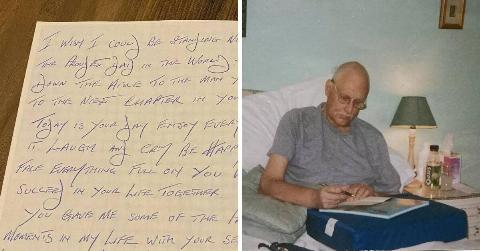 I WISH I COULD BE STANDING N
THE PROUDEST DAD IN THE WORLD
DOWN THE AISLE TO THE MAN Y
TO THE NEXT CHAPTER IN YOU
TODAY IS YOUR DAY ENJOY EVERY
IT LAUGH AND CRY BE HAPP
FACE EVERYTHING FULL ON YOU W
SUCCEED IN YOUR LIFE TOGETHER
YOU GAVE ME SOME OF THE
MOMENTS IN MY LIFE WITH YOUR SE